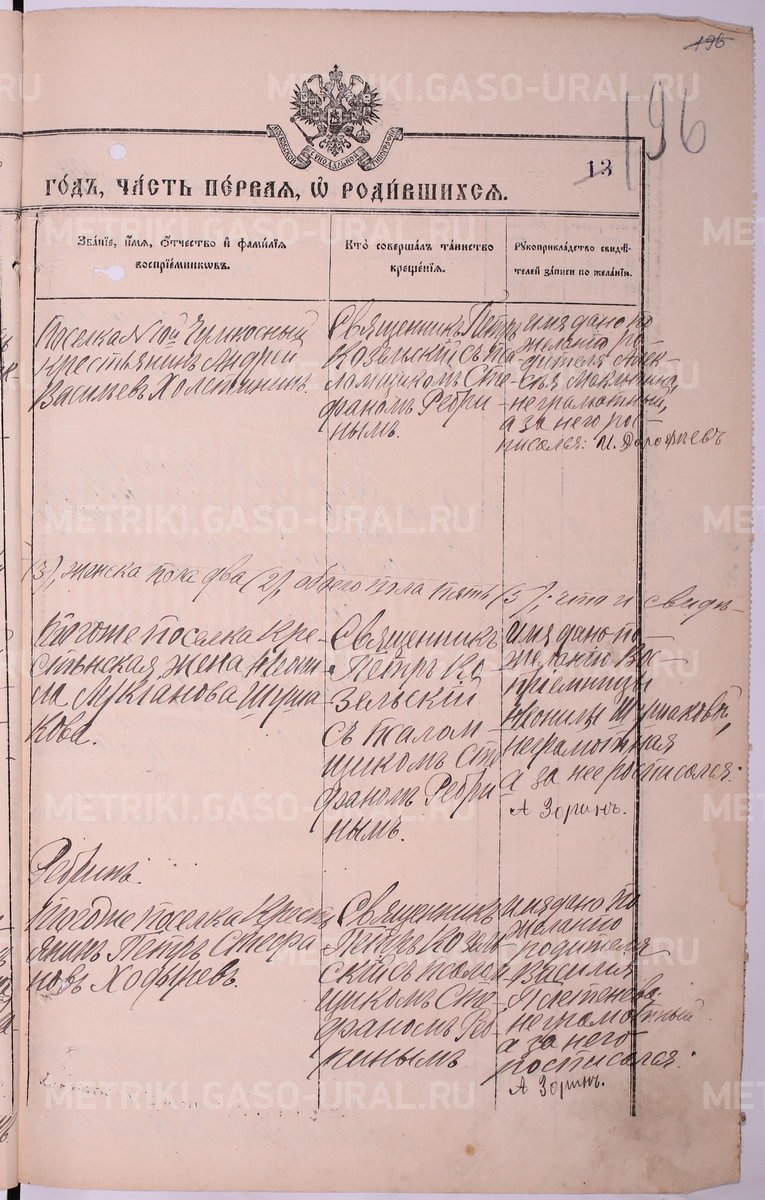 195
196
13
годъ, часть первая, ѡ родившихся.
Званіе, имя, отчество и фамилія
воспріемниковъ.
Кто совершалъ таинство
крещенія.
Рукоприкладство свидѣ-
телей записи по желанію.
Поселка №10й
крестьянинъ Андрей
Васильевъ Холстининъ.
Священникъ Петръ
Козельский съ пса-
ломщикомъ Сте-
фаномъ Ребри
нымъ.
имя дано по
желанію ро-
дителя
неграмотный,
а за него рос-
писался: И. Дорофѣевъ
(3), женска пола два (2), обоего пола пять (5); что и свидѣ-
Тогоже поселка кре-
стьянская жена
кова.
Священникъ
Петръ Ко
зельский
съ псалом
щикомъ Сте
фаномъ Ребри
нымъ.
имя дано по-
желанію вос-
пріемницы
неграмотная
а за нее росписался.
А Зоринъ.
Ребринъ.
Тогоже поселка крест
янинъ Петръ Стефа
новъ Ходыревъ.
Священникъ
Петръ Козель
скій съ псалом
щикомъ Сте
фаномъ Реб-
ринымъ
имя дано по
желанію
родителя
Василия
неграмотный
а за него
росписался.
А Зоринъ.
METRIKI.GASO-URAL.RU